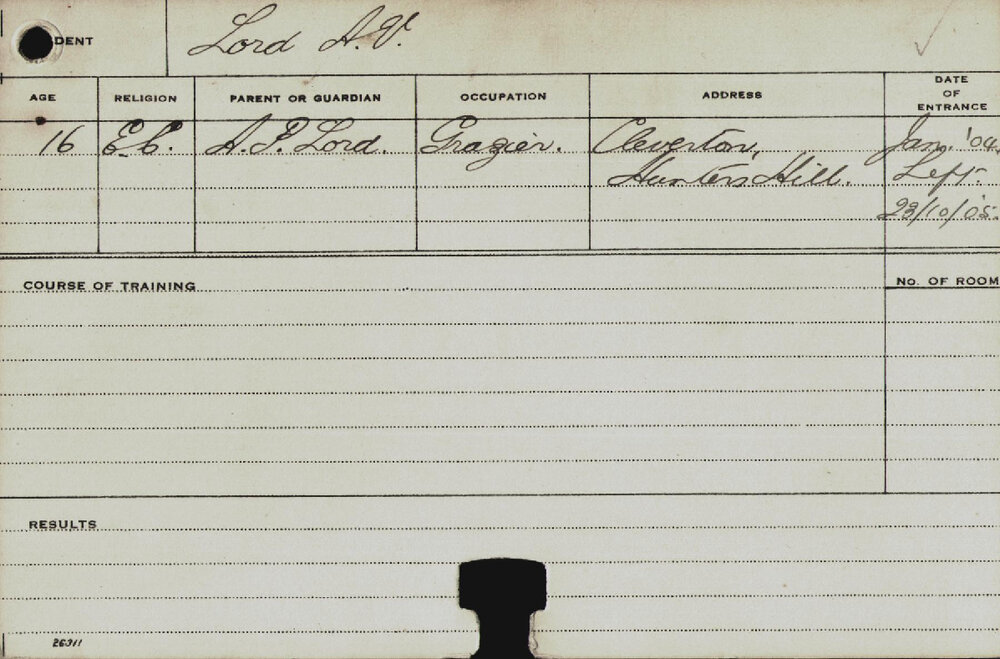 DENT Lord A.V.
AGE RELIGION PARENT OR GUARDIAN OCCUPATION ADDRESS DATE OF ENTRANCE
16 E.C. A.P. Lord. Grazier. Cleverton, Jan. '04.
Hunters Hill. Left.
23/10/05.
COURSE OF TRAINING No. OF ROOM
RESULTS
26311